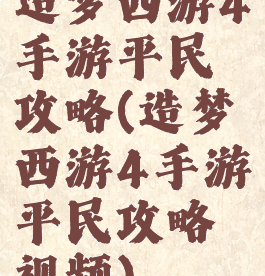 造梦西游4
手游平民
攻略(造梦
西游4手游
平民攻略
视频)